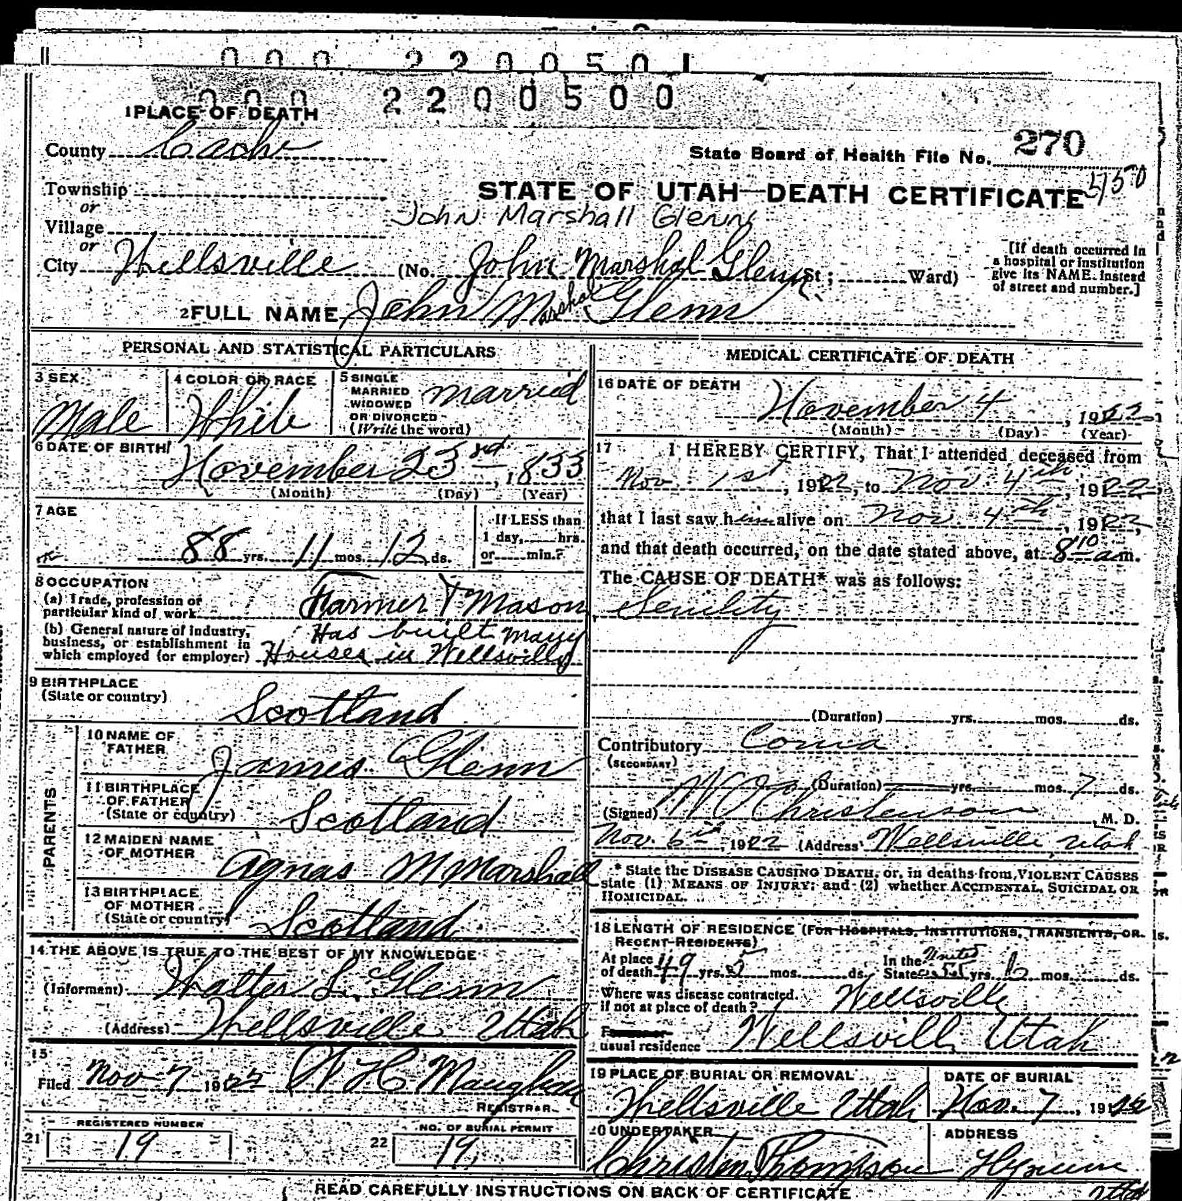 000 2200501
000 2200500
1 PLACE OF DEATH
County Cache
State Board of Health File No. 270
Township
or
Village
or
STATE OF UTAH—DEATH CERTIFICATE
John Marshall Glenn
City Wellsville (No. John Marshal Glenn St; Ward)
[If death occurred in
a hospital or institution
give its NAME instead
of street and number.]
2 FULL NAME John Marshal Glenn
PERSONAL AND STATISTICAL PARTICULARS
3 SEX
Male
4 COLOR OR RACE
White
5 SINGLE
MARRIED
WIDOWED
OR DIVORCED
(Write the word)
married
6 DATE OF BIRTH
November 23rd, 1833
(Month) (Day) (Year)
7 AGE
88 yrs. 11 mos. 12 ds.
If LESS than
1 day, hrs.
or min.?
8 OCCUPATION
(a) Trade, profession or
particular kind of work
Farmer & Mason
(b) General nature of industry,
business, or establishment in
which employed (or employer)
Has built many
Houses in Wellsville
9 BIRTHPLACE
(State or country)
Scotland
PARENTS
10 NAME OF
FATHER
James Glenn
11 BIRTHPLACE
OF FATHER
(State or country)
Scotland
12 MAIDEN NAME
OF MOTHER
Agnas M Marshall
13 BIRTHPLACE
OF MOTHER
(State or country)
Scotland
14 THE ABOVE IS TRUE TO THE BEST OF MY KNOWLEDGE
(Informant) Walter L. Glenn
(Address) Wellsville Utah
15
Filed Nov 7 1922 W H Maughan
REGISTRAR
21
REGISTERED NUMBER
19
22
NO. OF BURIAL PERMIT
19
MEDICAL CERTIFICATE OF DEATH
16 DATE OF DEATH
November 4, 1922
(Month) (Day) (Year)
17 I HEREBY CERTIFY, That I attended deceased from
Nov 1st, 1922, to Nov 4th, 1922
that I last saw him alive on Nov 4th, 1922,
and that death occurred, on the date stated above, at 8 10 am.
The CAUSE OF DEATH* was as follows:
Senility
(Duration) yrs. mos. ds.
Contributory Coma
(SECONDARY)
(Duration) yrs. mos. 7 ds.
(Signed) W O Christenson, M. D.
Nov. 6th, 1922 (Address) Wellsville Utah
*State the DISEASE CAUSING DEATH, or, in deaths from VIOLENT CAUSES
state (1) MEANS OF INJURY; and (2) whether ACCIDENTAL, SUICIDAL OR
HOMICIDAL.
18 LENGTH OF RESIDENCE (FOR HOSPITALS, INSTITUTIONS, TRANSIENTS, OR
RECENT RESIDENTS)
At place
of death 49 yrs. 5 mos. ds.
In the United
State yrs. mos. ds.
Where was disease contracted
if not at place of death? Wellsville
usual residence Wellsville Utah
19 PLACE OF BURIAL OR REMOVAL
Wellsville Utah
DATE OF BURIAL
Nov. 7, 1922
20 UNDERTAKER
Christen Thompson
ADDRESS
Hyrum
Utah
READ CAREFULLY INSTRUCTIONS ON BACK OF CERTIFICATE